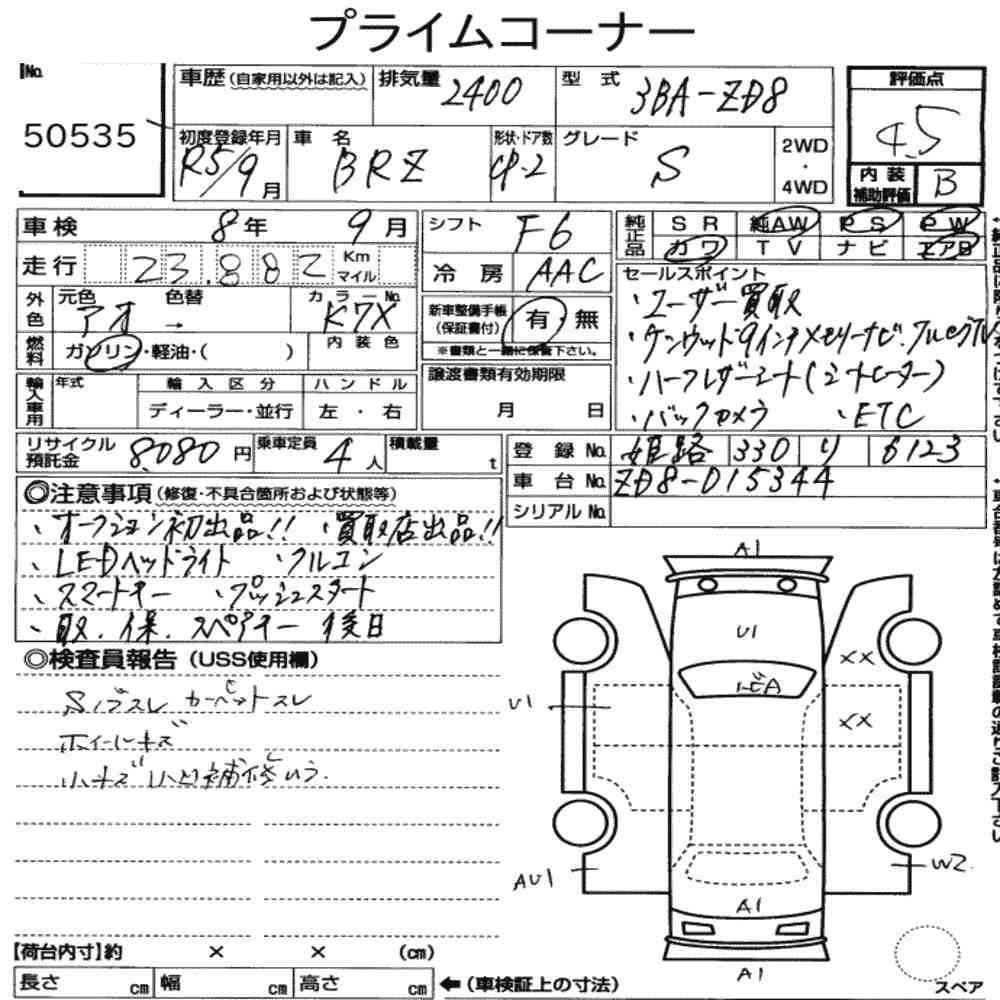 プライムコーナー
No.
50535
車歴 (自家用以外は記入) 排気量 2400 型式 3BA-ZD8
初度登録年月 R5/9月 車名 BRZ 形状・ドア数 CP-2 グレード S 2WD・4WD
評価点
4.5
内装補助評価 B
車検 8年 9月
走行 23,882 Km マイル
外色 元色 アオ 色替 → カラーNo. K7X
燃料 ガソリン・軽油・( ) 内装色
輸入車用 年式 輸入区分 ハンドル
ディーラー・並行 左・右
シフト F6
冷房 AAC
新車整備手帳(保証書付) 有 無
※書類と一緒に保管下さい。
譲渡書類有効期限
月 日
純正品 SR 純AW PS PW
カワ TV ナビ エアB
セールスポイント
・ユーザー買取
・ケンウッド9インチメモリーナビ.フルセグTV
・ハーフレザーシート(シートヒーター)
・バックカメラ ・ETC
リサイクル預託金 8,080円 乗車定員 4人 積載量 t
登録No. 姫路 330 り 6123
車台No. ZD8-015344
シリアルNo.
◎注意事項(修復・不具合箇所および状態等)
・オークション初出品!! ・買取店出品!!
・LEDヘッドライト ・クルコン
・スマートキー ・プッシュスタート
・取.保.スペアキー 後日
◎検査員報告(USS使用欄)
カーペットスレ
ホイールキズ
小キズ
A1
U1
XX
トビA
U1
XX
AU1
W2
A1
A1
【荷台内寸】約 × × (cm)
長さ cm 幅 cm 高さ cm ←(車検証上の寸法)
スペア